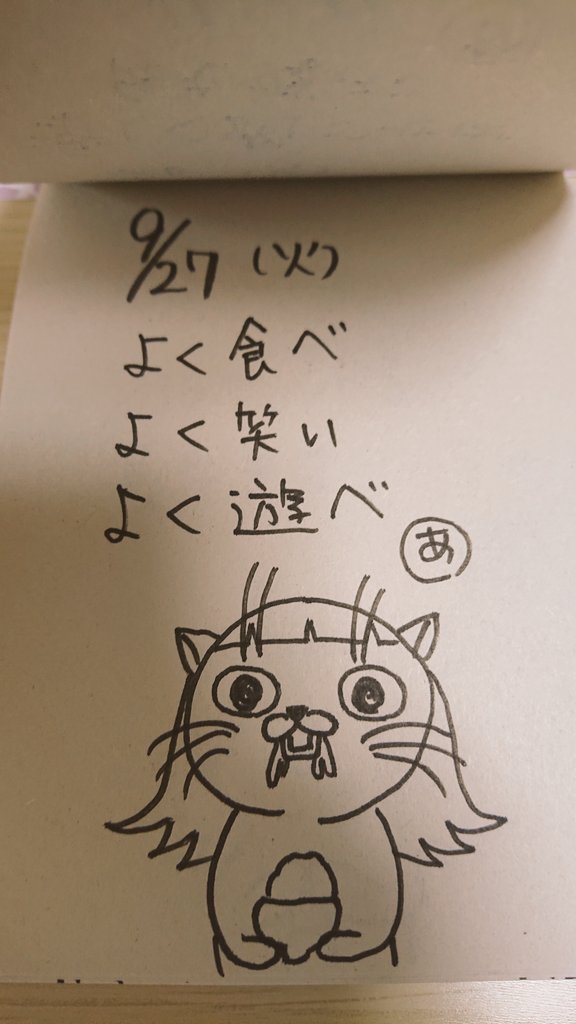 9/27 (火)
よく食べ
よく笑い
よく遊べ
あ